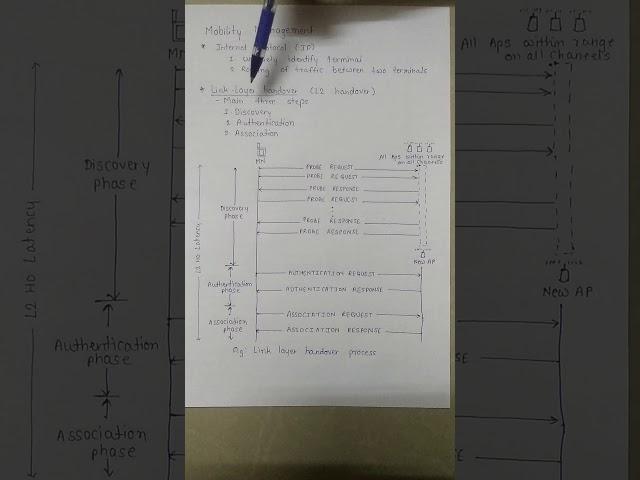 Mobility Management
* Internet Protocol (IP)
1. Uniquely identify terminal
2. Routing of traffic between two terminals
* Link-Layer handover (L2 handover)
- Main three steps
1. Discovery
2. Authentication
3. Association
MN
All Aps within range
on all channels
PROBE REQUEST
PROBE REQUEST
PROBE RESPONSE
PROBE REQUEST
PROBE RESPONSE
PROBE RESPONSE
Discovery
phase
L2 HO Latency
New AP
AUTHENTICATION REQUEST
Authentication
phase
AUTHENTICATION RESPONSE
ASSOCIATION REQUEST
Association
phase
ASSOCIATION RESPONSE
Fig: Link layer handover process
MN
Discovery
phase
L2 HO Latency
Authentication
phase
Association
phase
All Aps within range
on all channels
New AP